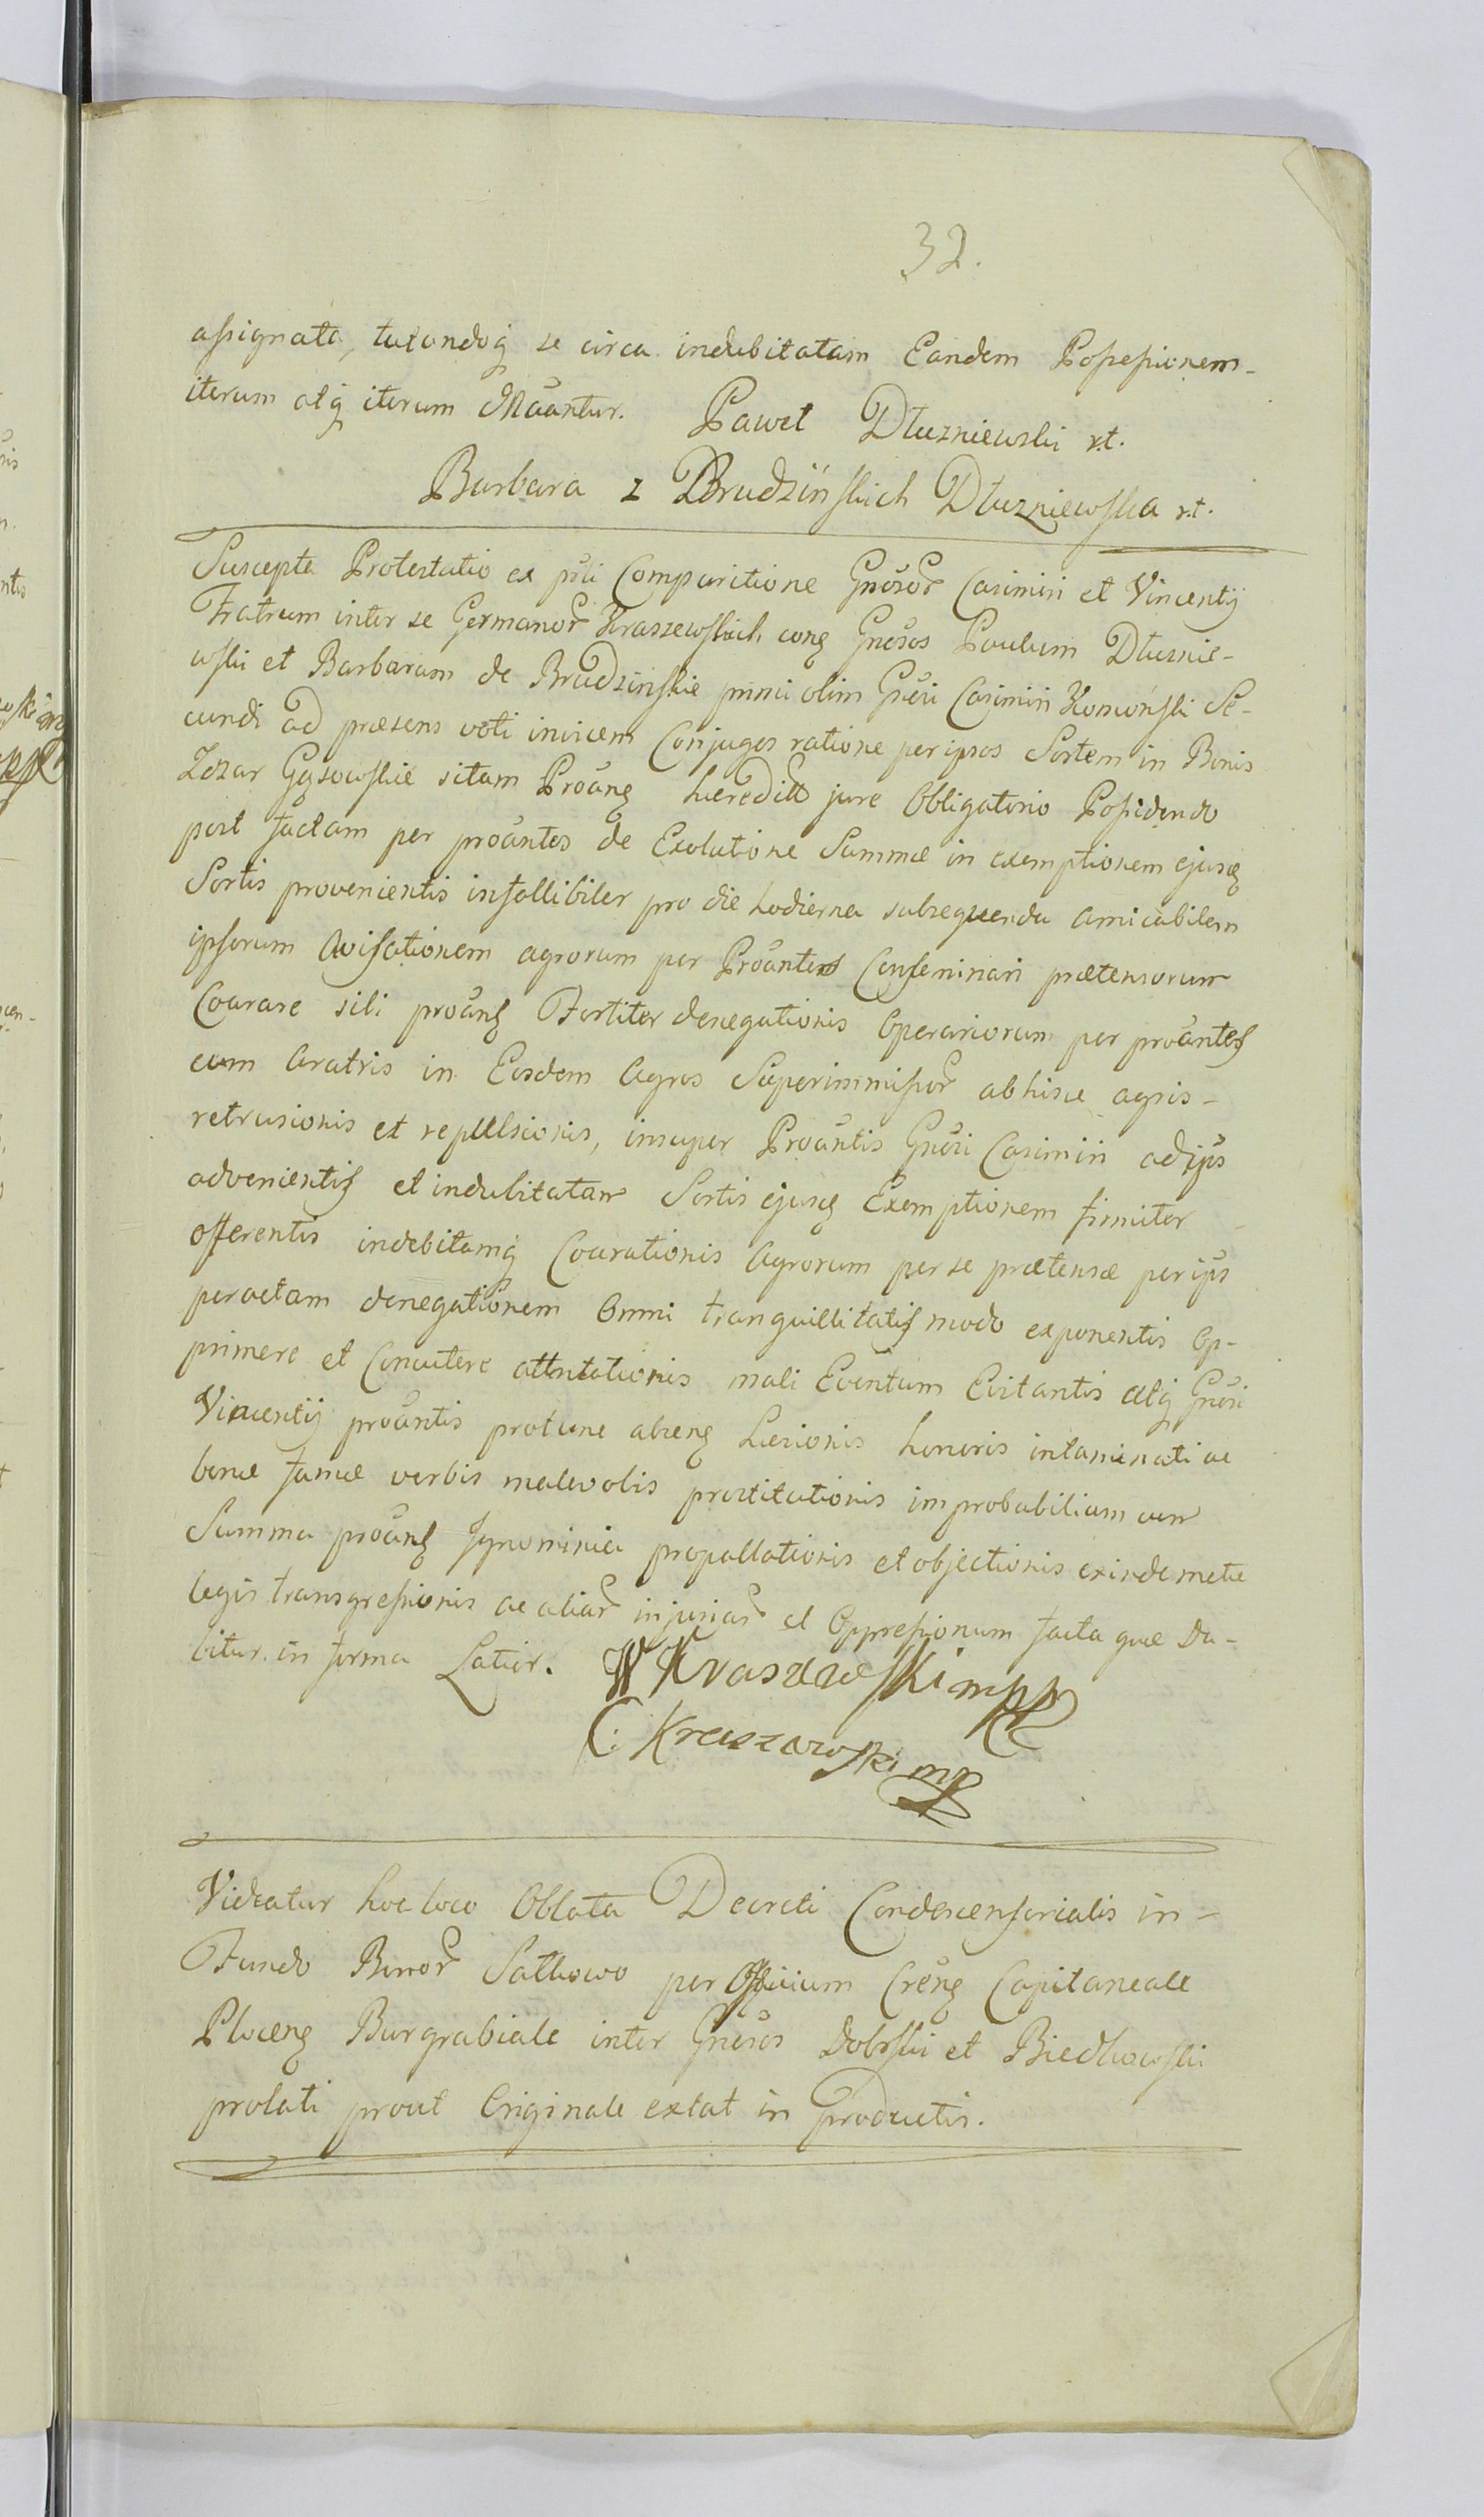 32.
assignata, tutandoq se circa indubitatam Eandem Possessionem
iterum atq iterum Mãantur. Paweł Dłuzniewski rt.
Barbara z Brudzińskich Dłuzniewska r.t.
Suscepta Protestatio ex pńli Comparitione Gnosor Casimiri et Vincentij
Fratrum inter se Germanor Kraszewskich conq Gnosos Paulum Dłuznie-
wski et Barbaram de Brudzinskie primi olim Gnosi Casimiri Komoński Se-
cundi ad præsens voti invicem Conjuges ratione per ipsos Sortem in Bonis
Zdzar Gąsowskie sitam Proãnq hæreditt jure Obligatorio Possidendo
post factam per proãntes de Exolutione Summæ in exemptionem ejusq
Sortis provenientis infallibiler pro die hodierna subsequenda amicabilem
ipsorum avisationem agrorum per Proãntes Conseminari prætensorum
Coarare sibi proãnq Fortiter denegationis Operariorum per proãntes
cum Aratris in Eosdem Agros Superimmissor abhisce agris
retrusionis et repulsionis, insuper Proãntis Gnosi Casimiri ad ips
advenientis et indubitatam Sortis ejusq Exemptionem firmiter
offerentis indebitamq Coarationis Agrorum per se prætensæ per ips
peractam denegationem Omni tranquillitatis modo exponentis Op-
primere et Concutere attentationis mali Eventum Evitantis atq Gnosi
Vincentij proãntis protunc absenq Læsionis honoris intaminati ac
bonæ famæ verbis malevolis prostitutionis improbabilium cum
Summa proãnq Ignominia propallationis et objectionis exinde metæ
legis transgressionis ac aliar injuriar et Oppressionum facta quæ Da-
bitur in forma Latior. W Kraszewski mpp
C: Kraszewski mp
Videatur hoc loco Oblata Decreti Condescensorialis in
Fundo Bonor Satkowo per Officium Crenq Capitaneale
Plocenq Burgrabiale inter Gnosos Dobrski et Biedkowski
prolati prout Originale extat in Productis.